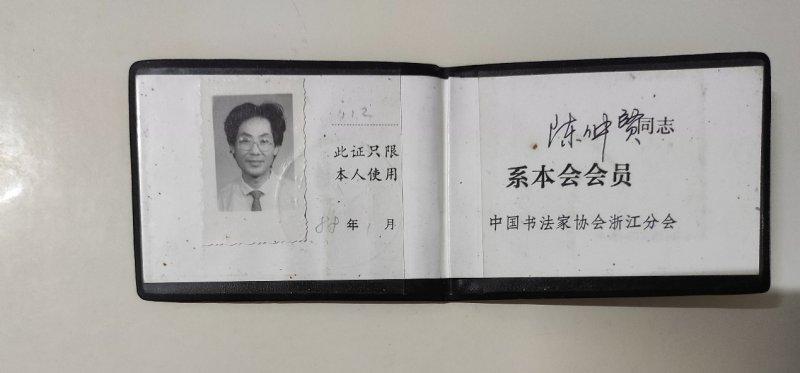 512
此证只限
本人使用
88年1月
陈仲贤同志
系本会会员
中国书法家协会浙江分会